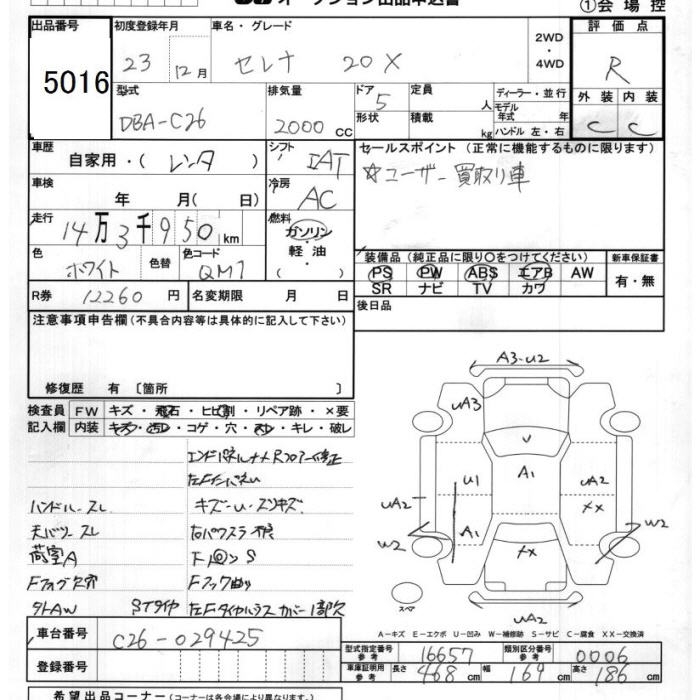 オークション出品申込書
①会 場 控
出品番号
5016
初度登録年月
23 12月
車名・グレード
セレナ 20X
2WD
・
4WD
評 価 点
R
外 装 内 装
C C
型式
DBA-C26
排気量
2000 CC
ドア 5
形状
定員 人
積載 kg
ディーラー・並行
モデル年式 年
ハンドル 左・右
車歴
自家用・( レンタ )
シフト
IAT
セールスポイント (正常に機能するものに限ります)
☆ユーザー買取り車
車検
年 月( 日)
冷房
AC
走行
14万3千950km
燃料
ガソリン
・
軽 油
( )
色
ホワイト
色替
色コード
QM1
装備品 (純正品に限り○をつけてください)
新車保証書
PS PW ABS エアB AW
SR ナビ TV カワ
有・無
R券 12260 円
名変期限 月 日
後日品
注意事項申告欄(不具合内容等は具体的に記入して下さい)
修復歴 有 〔箇所 〕
検査員
記入欄
FW キズ・飛石・ヒビ割・リペア跡・×要
内装 キズ・汚レ・コゲ・穴・スレ・キレ・破レ
ハンドル スレ
キズ・U・スリキズ
天バリ スレ
荷室A
Fフォグ欠穴
Fフック曲り
タトAW
STタイヤ
A3-U2
UA3
V
U1
A1
UA2
UA2
XX
A1
W2
W2
XX
スペア
UA2
A-キズ E-エクボ U-凹み W-補修跡 S-サビ C-腐食 XX-交換済
車台番号
C26-029425
登録番号
型式指定番号
参考
16657
類別区分番号
参考
0006
車庫証明用
参考
長さ 468 cm 幅 169 cm 高さ 186 cm
希望出品コーナー(コーナーは各会場により異なります。)